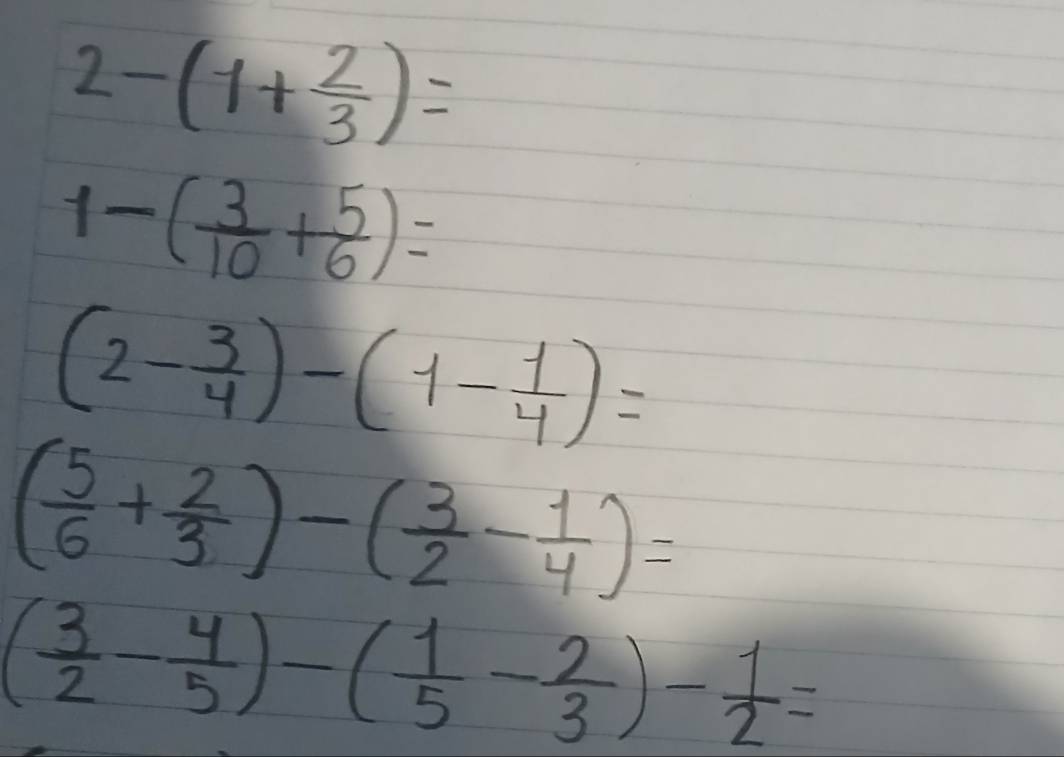 2-(1+2/3)=
1-(3/10+5/6)=
(2-3/4)-(1-1/4)=
(5/6+2/3)-(3/2-1/4)=
(3/2-4/5)-(1/5-2/3)-1/2=